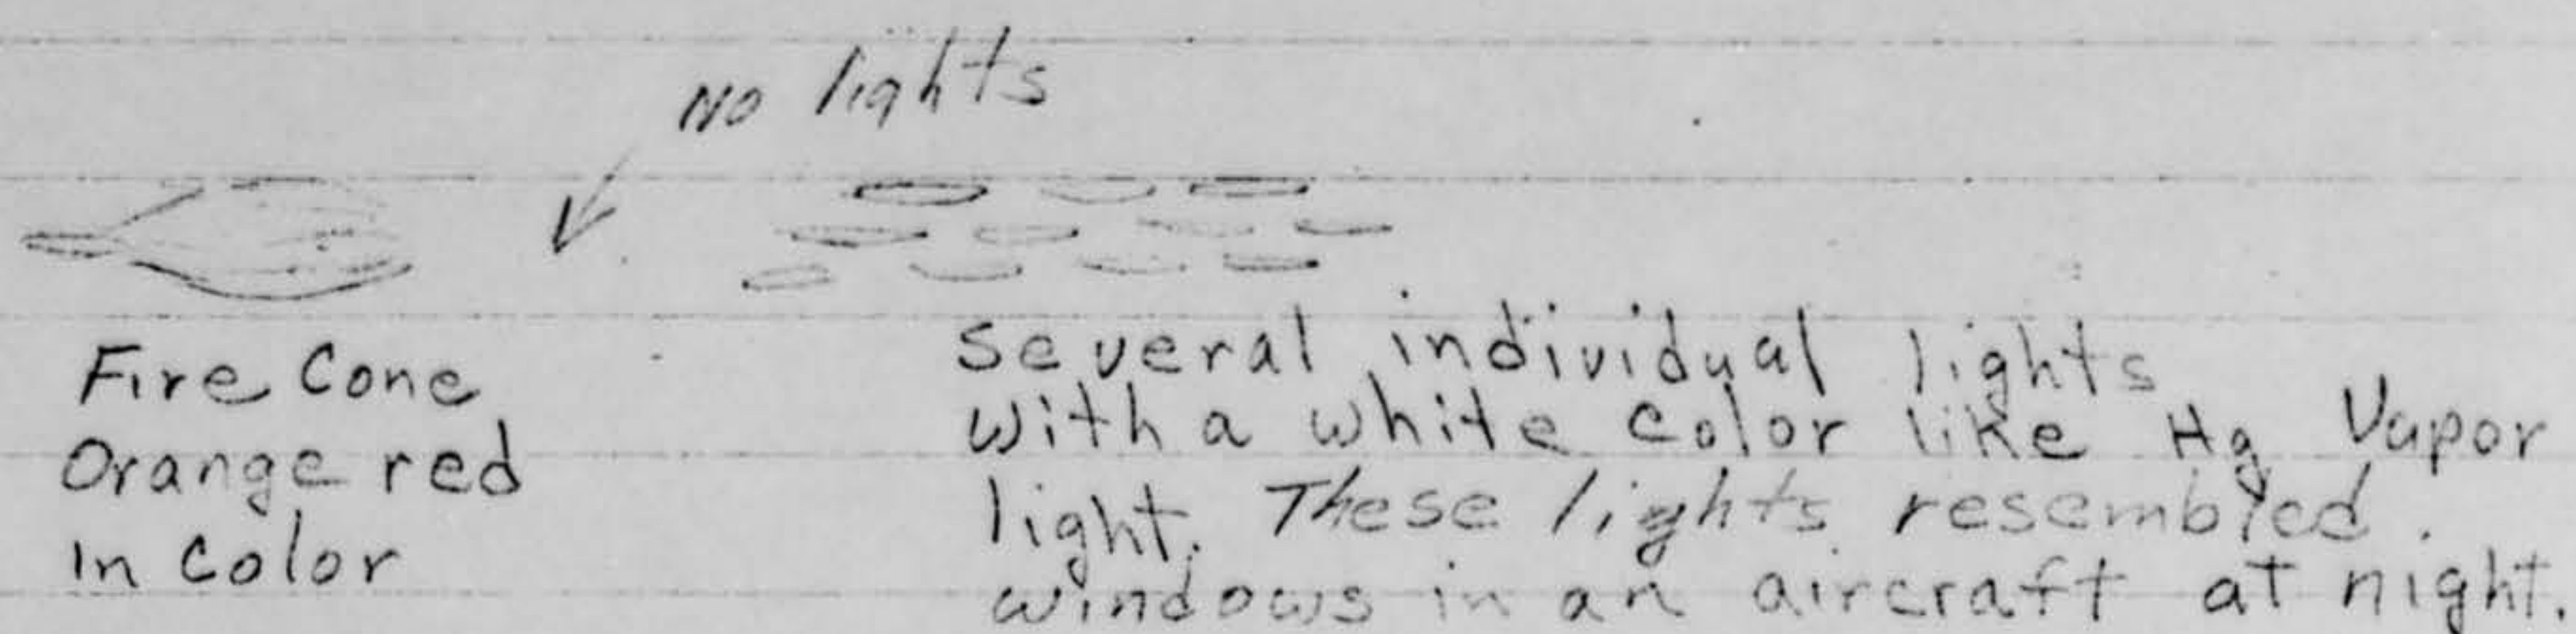 No lights
Fire Cone
Orange red
In Color
Several individual lights
with a white color like Hg Vapor
light. These lights resembled
windows in an aircraft at night.